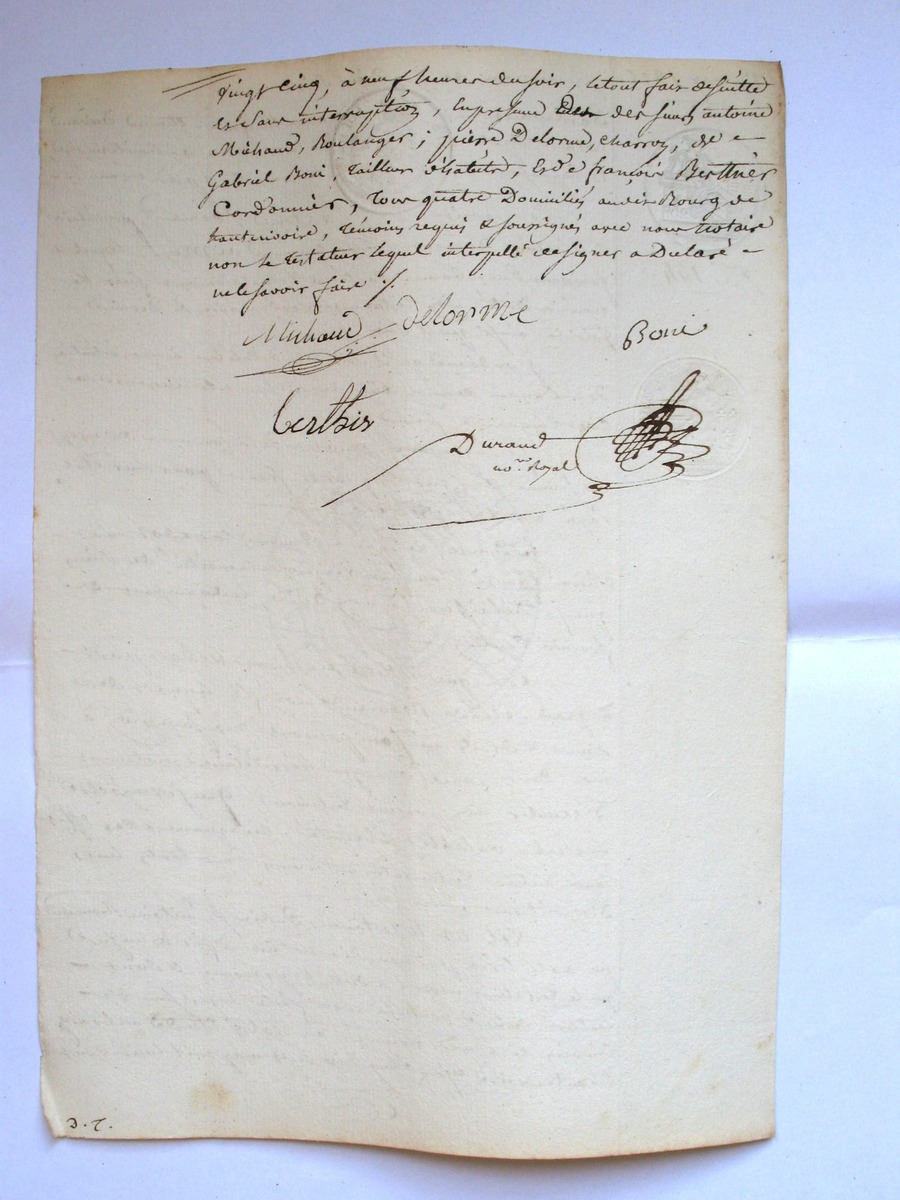 vingt cinq, à neuf heures du soir, le tout fait de suitte
et sans interruption, en presence des des sieurs antoine
Michaud, Boulanger; pierre Delorme, charron, de
Gabriel Boni, tailleur d'habits, Et de françois Berthier
Cordonnier, tous quatre Domiciliés audit Bourg de
hauterivoire, témoins requis & soussignés avec nous notaire
non le testateur lequel interpellé de signer a Declaré
ne le savoir faire ./.
Michaud delorme
Boni
berthier
Durand
no.re Royal
D. T.